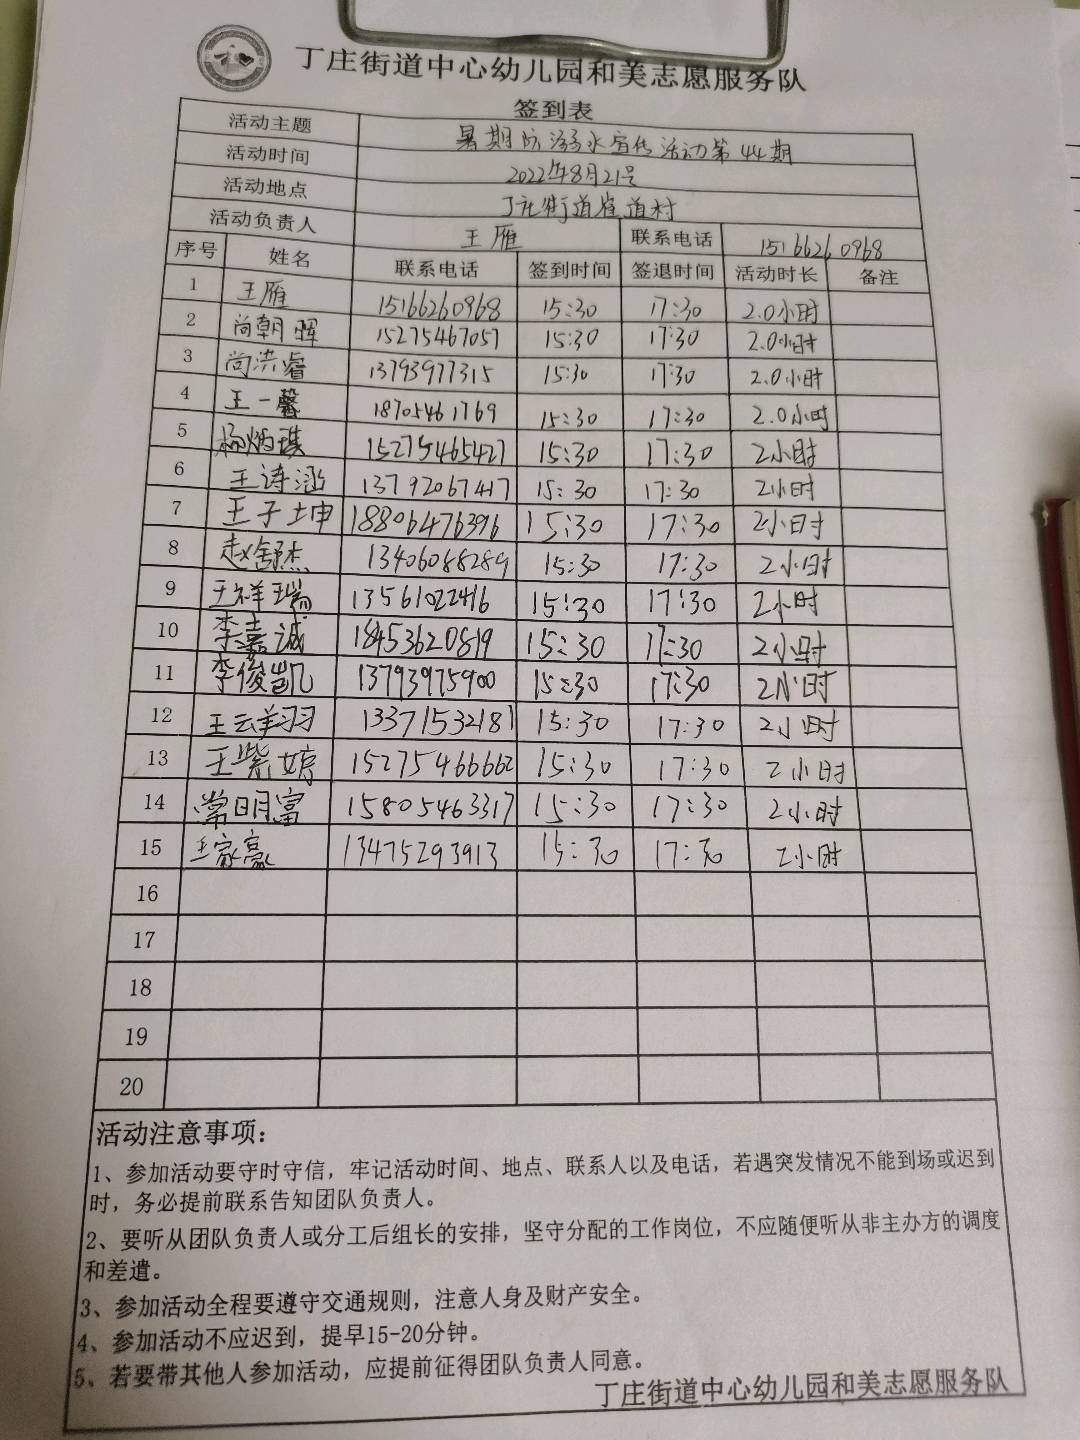 丁庄街道中心幼儿园和美志愿服务队
签到表
活动主题 暑期防溺水宣传活动第44期
活动时间 2022年8月21号
活动地点 丁庄街道崔道村
活动负责人 王雁 联系电话 15166260968
序号 姓名 联系电话 签到时间 签退时间 活动时长 备注
1 王雁 15166260968 15:30 17:30 2.0小时
2 尚朝晖 15275467057 15:30 17:30 2.0小时
3 尚洪睿 13793977315 15:30 17:30 2.0小时
4 王一馨 18705461769 15:30 17:30 2.0小时
5 杨炳琪 15275465427 15:30 17:30 2小时
6 王诗涵 13792067417 15:30 17:30 2小时
7 王子坤 18806476396 15:30 17:30 2小时
8 赵舒杰 13406088289 15:30 17:30 2小时
9 王祥瑞 13561022416 15:30 17:30 2小时
10 李嘉诚 18453620819 15:30 17:30 2小时
11 李俊凯 13793975900 15:30 17:30 2小时
12 王云翔羽 13371532187 15:30 17:30 2小时
13 王紫婷 15275466662 15:30 17:30 2小时
14 常明富 15805463317 15:30 17:30 2小时
15 王家豪 13475293913 15:30 17:30 2小时
16
17
18
19
20
活动注意事项：
1、参加活动要守时守信，牢记活动时间、地点、联系人以及电话，若遇突发情况不能到场或迟到
时，务必提前联系告知团队负责人。
2、要听从团队负责人或分工后组长的安排，坚守分配的工作岗位，不应随便听从非主办方的调度
和差遣。
3、参加活动全程要遵守交通规则，注意人身及财产安全。
4、参加活动不应迟到，提早15-20分钟。
5、若要带其他人参加活动，应提前征得团队负责人同意。
丁庄街道中心幼儿园和美志愿服务队